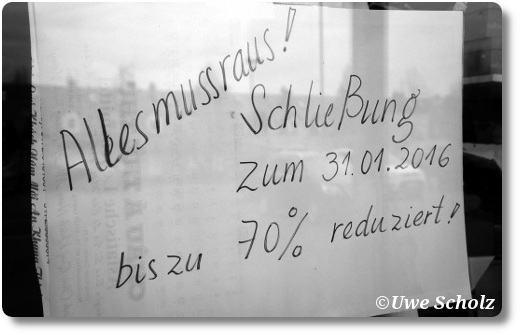 Alles mussraus!
Schließung
zum 31.01.2016
bis zu 70% reduziert!
©Uwe Scholz